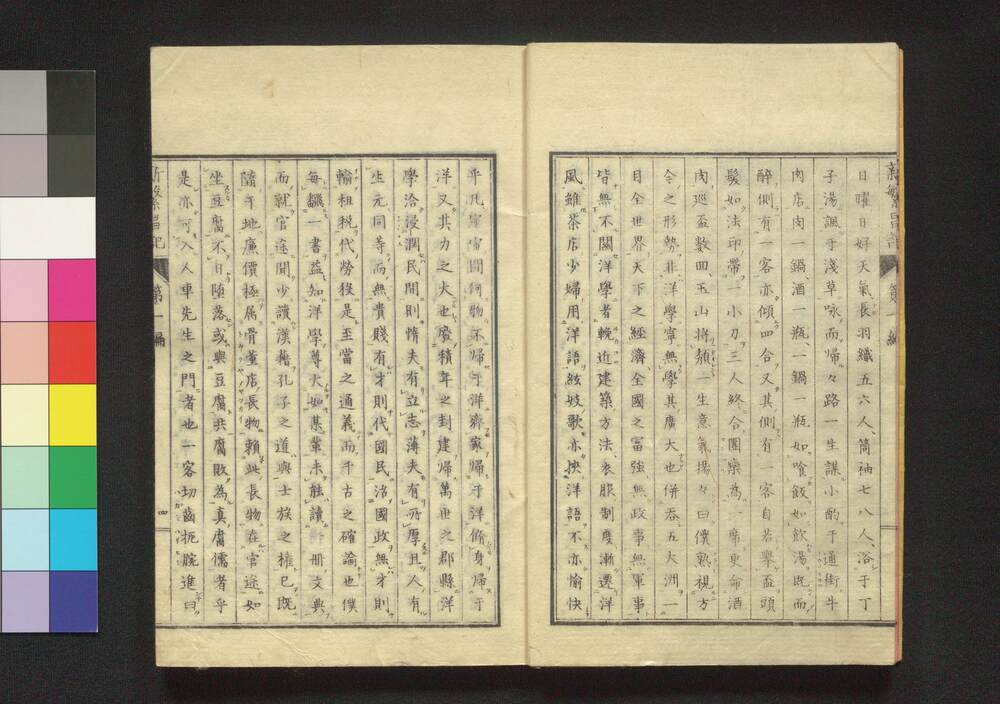 新繁昌記 第一編
日曜日好天氣長羽織五六人筒袖七八人浴于丁
子湯諷于淺草咏而歸々路一生謀小酌于通街牛
肉店肉一鍋酒一瓶一鍋一瓶如喰飯如飲湯既而
醉側有一客亦傾四合又其側有一客自若擧盃頭
髮如法印帶一小刀三人終合團欒爲一席更命酒
肉巡盃數回玉山將頽一生意氣揚々曰僕熟視方
今之形勢非洋學寧無學其廣大也併吞五大洲一
目全世界天下之經濟全國之富強無政事無軍事
皆無不關洋學者輓近建築方法衣服制度漸遷洋
風雖茶店少婦用洋語絃妓歌亦挾洋語不亦愉快
乎凡宇宙間何物不歸于洋齊家歸于洋脩身歸于
洋又其力之大也廢積年之封建歸萬世之郡縣洋
學洽浸潤民間則惰夫有立志薄夫有所厚且人有
生元同等而無貴賤有才則代國民治國政無才則
輸租稅代勞役是至當之通義而千古之確論也僕
每繙一書益知洋學尊大如某輩未能讀一冊文典
而就官途聞少讀漢籍孔子之道與士族之權已既
墮于地廉價極屬骨董店長物賴此長物在官途如
坐豆腐不日墮落或與豆腐共腐敗爲眞腐儒者乎
是亦可入人車先生之門者也一客切齒扼腕進曰
新繁昌記 第一編 四